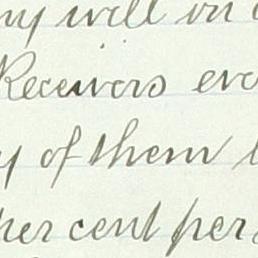 my will on
Receivers eve
y of them
per cent per